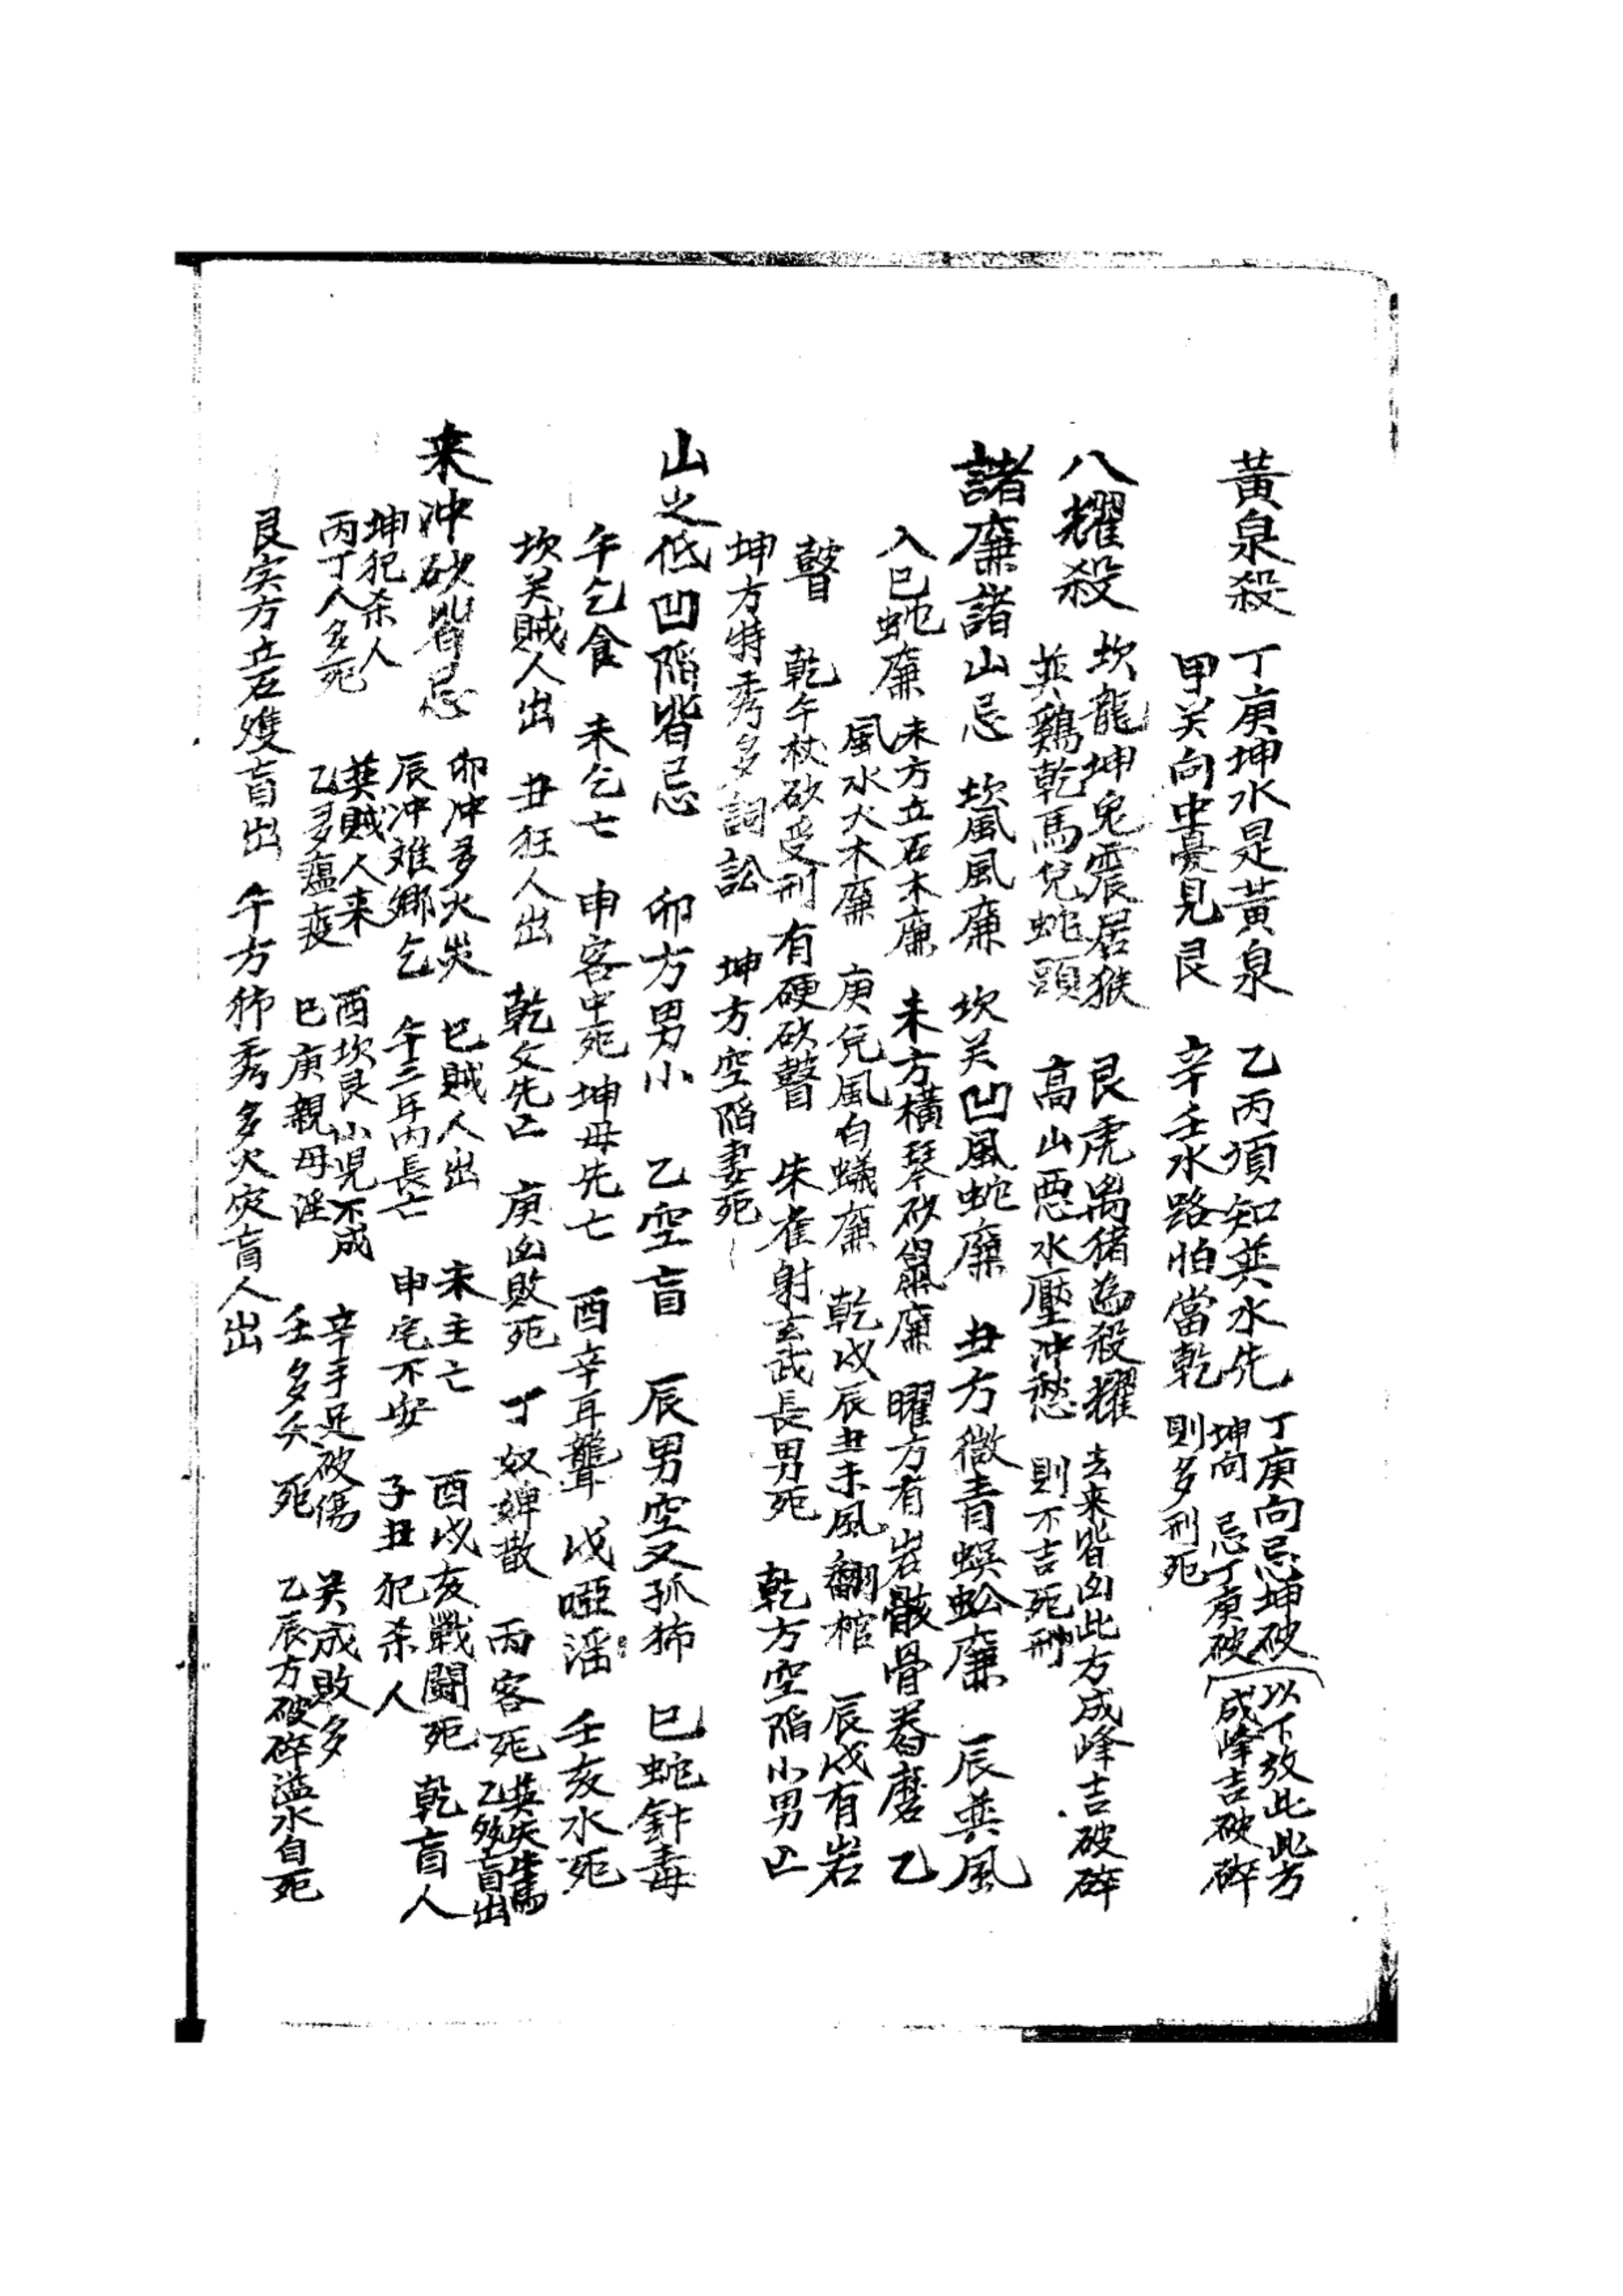 黃泉殺
丁庚坤水是黃泉 乙丙須知巽水先 丁庚向忌坤破 以下放此此方
甲关向中憂見艮 辛壬水路怕當乾 坤向忌丁庚破 成峰吉破碎
則多刑死
八耀殺
坎龍坤兎震居猴 艮虎离猪為殺耀 去来皆凶此方成峰吉破碎
巽鷄乾馬兌蛇頭 高山惡水壓冲愁 則不吉死刑
諸廉諸山忌 坎風風廉 坎关凹風蛇廉 丑方微青蜈蚣廉 辰巽風
入巳蛇廉 未方立石木廉 未方横琴砂鼠廉 曜方有岩骸骨卷磨 乙
風水火木廉 庚兌風白蟻廉 乾戌辰丑未風翻棺 辰戌有岩
瞽 乾午杖砍受刑 有硬砍瞽 朱雀射玄武長男死 乾方空陷小男亡
坤方特秀多詞訟 坤方空陷妻死
山之低凹陷皆忌 卯方男小 乙空盲 辰男空又孤 巳蛇針毒
午乞食 未乞亡 申客中死 坤母先亡 酉辛耳聾 戌啞滛 壬亥水死
坎关賊人出 丑狂人出 乾父先亡 庚凶敗死 丁奴婢散 丙客死
乙多盲出
来冲砂皆忌 卯冲多火災 巳賊人出 未主亡 酉戌亥戰鬪死 乾盲人
辰冲难鄉乞 午三年內長亡 申宅不安 子丑犯杀人
坤犯杀人 巽賊人来 酉坎艮小児不成 辛手足破傷 关成敗多
丙丁人多死 乙多瘟疫 巳庚親母淫 壬多夭死 乙辰方破碎溢水自死
艮寅方立石雙盲出 午方秀多火灾盲人出